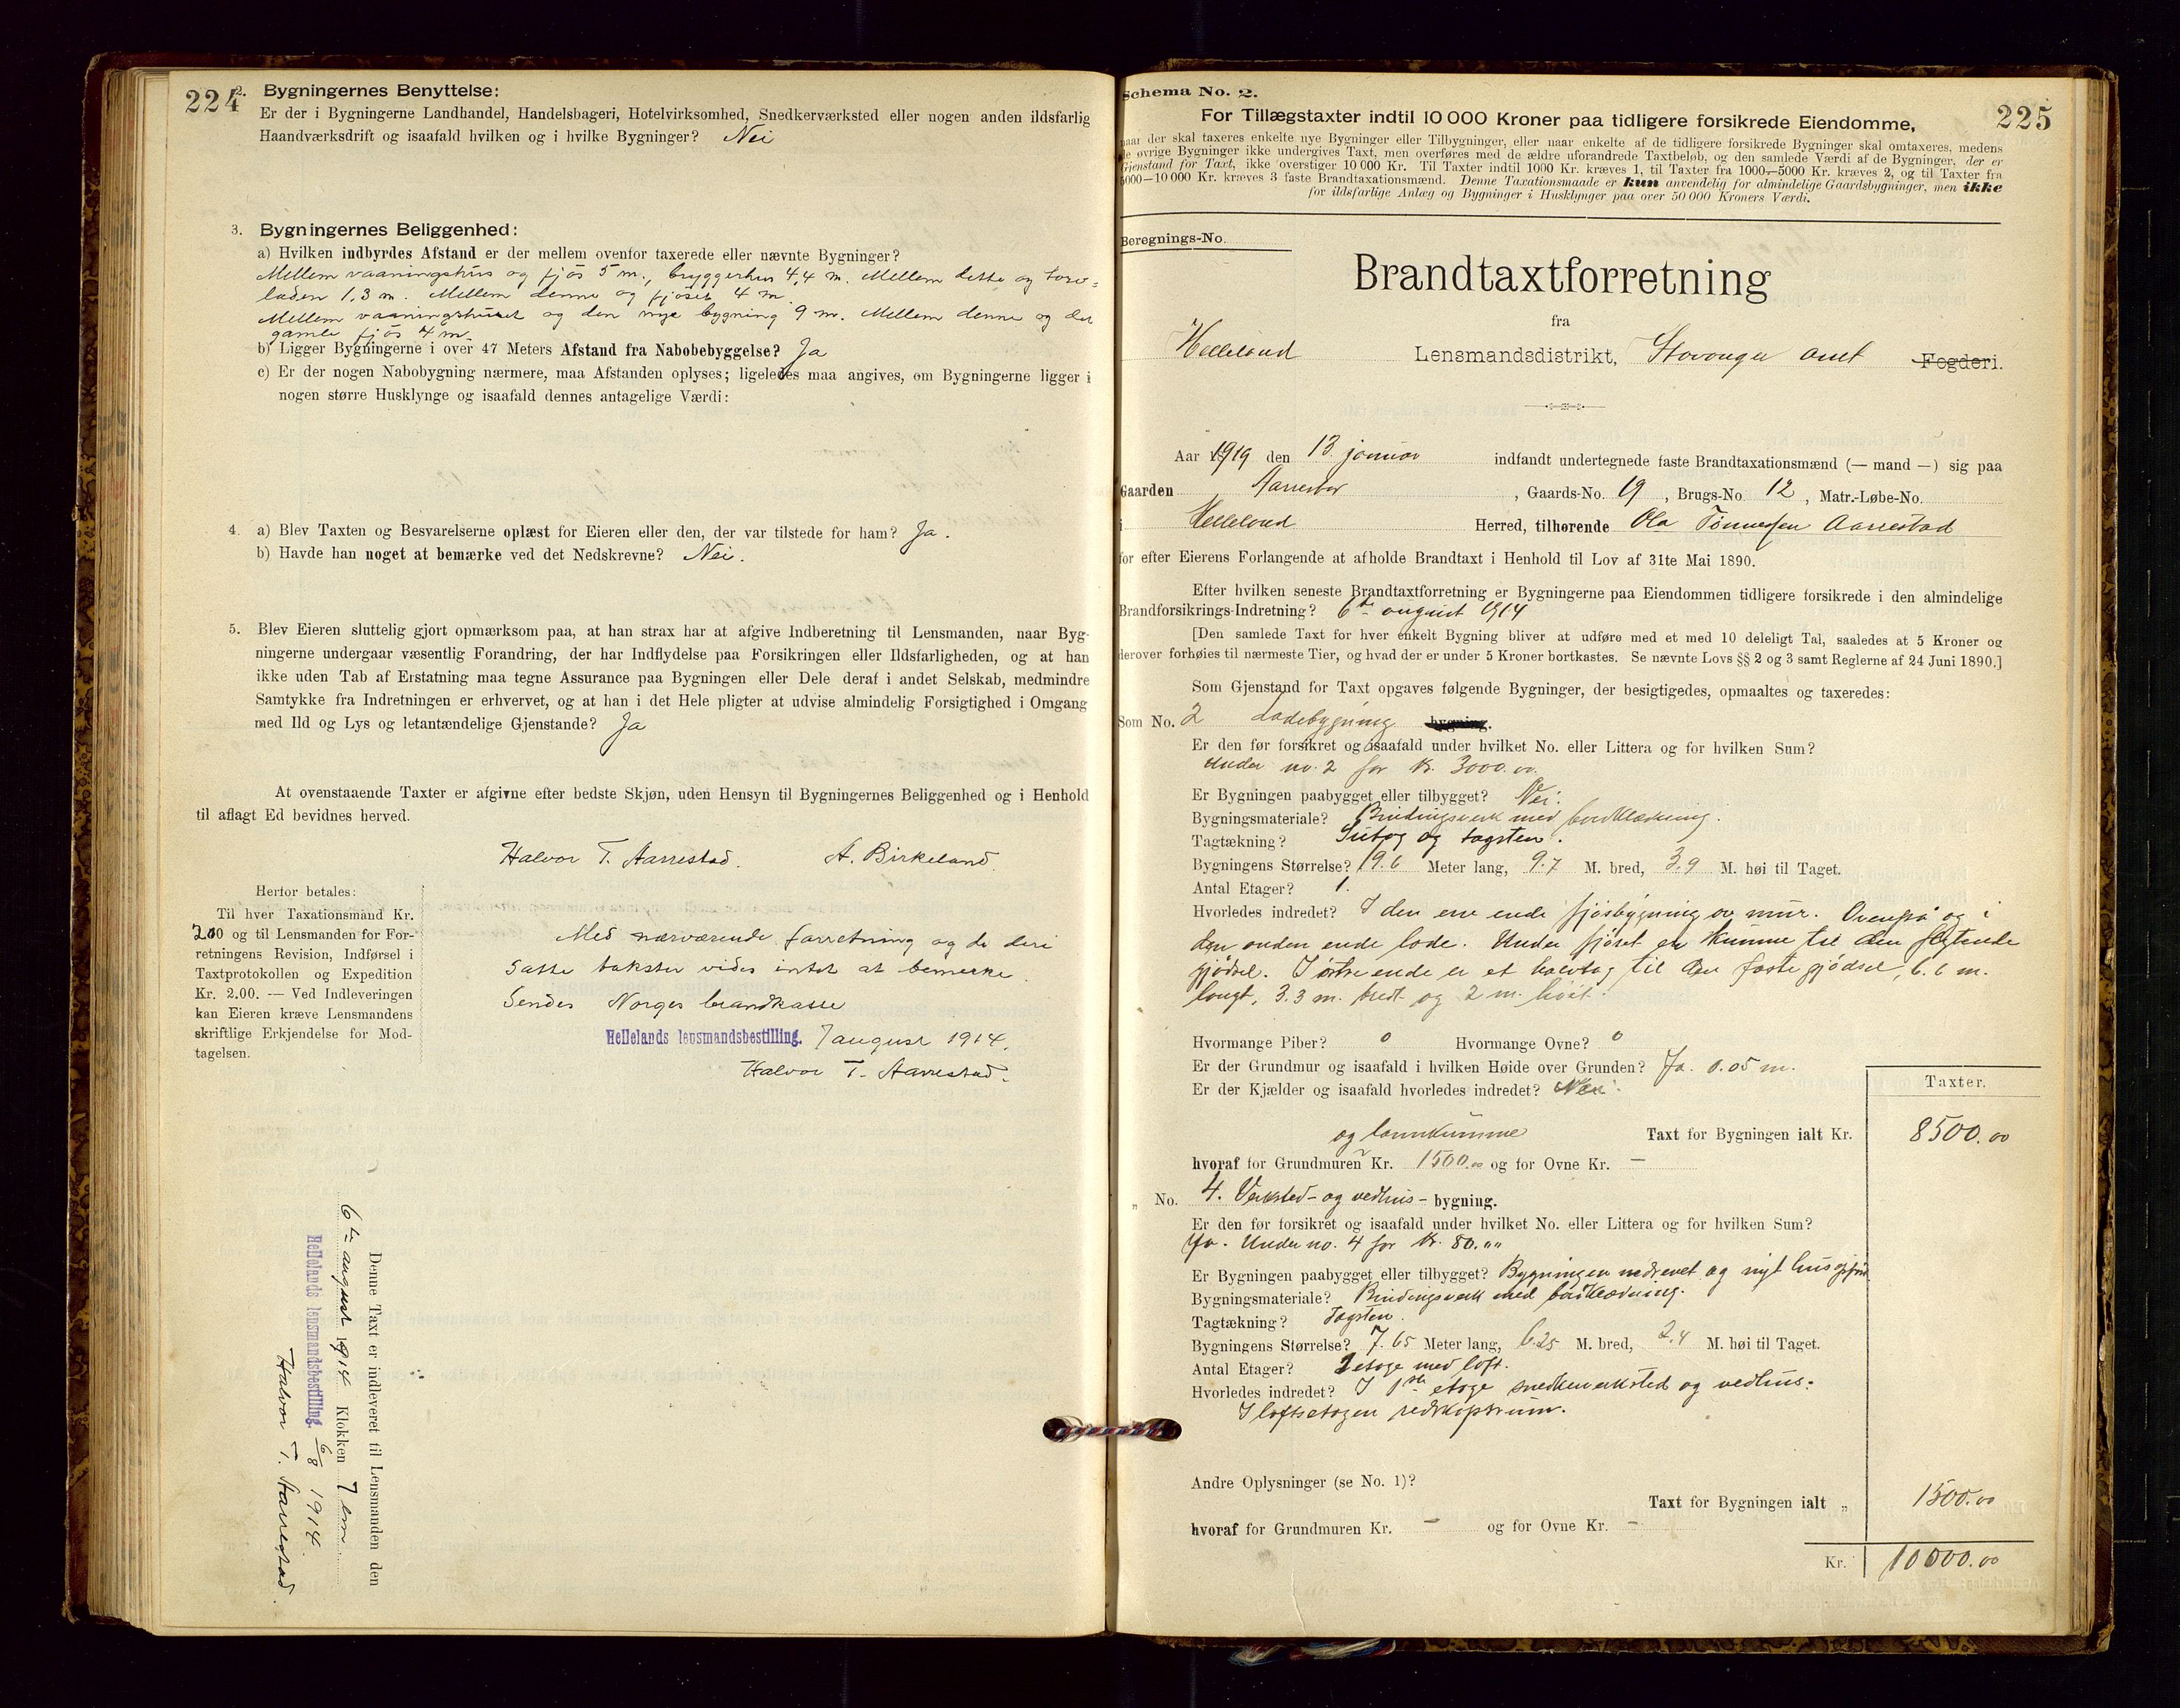 224
2. Bygningernes Benyttelse:
Er der i Bygningerne Landhandel, Handelsbageri, Hotelvirksomhed, Snedkerværksted eller nogen anden ildsfarlig
Haandværksdrift og isaafald hvilken og i hvilke Bygninger? Nei
3. Bygningernes Beliggenhed:
a) Hvilken indbyrdes Afstand er der mellem ovenfor taxerede eller nævnte Bygninger?
Mellem vaaningshus og fjøs 5 m., bryggerhus 4,4 m. Mellem dette og torv-
laden 1,3 m. Mellem denne og fjøset 4 m.
Mellem vaaningshuset og den nye bygning 9 m. Mellem denne og det
gamle fjøs 4 m.
b) Ligger Bygningerne i over 47 Meters Afstand fra Nabobebyggelse? Ja
c) Er der nogen Nabobygning nærmere, maa Afstanden oplyses; ligeledes maa angives, om Bygningerne ligger i
nogen større Husklynge og isaafald dennes antagelige Værdi:
4. a) Blev Taxten og Besvarelserne oplæst for Eieren eller den, der var tilstede for ham? Ja.
b) Havde han noget at bemærke ved det Nedskrevne? Nei.
5. Blev Eieren sluttelig gjort opmærksom paa, at han strax har at afgive Indberetning til Lensmanden, naar Byg-
ningerne undergaar væsentlig Forandring, der har Indflydelse paa Forsikringen eller Ildsfarligheden, og at han
ikke uden Tab af Erstatning maa tegne Assurance paa Bygningen eller Dele deraf i andet Selskab, medmindre
Samtykke fra Indretningen er erhvervet, og at han i det Hele pligter at udvise almindelig Forsigtighed i Omgang
med Ild og Lys og letantændelige Gjenstande? Ja
At ovenstaaende Taxter er afgivne efter bedste Skjøn, uden Hensyn til Bygningernes Beliggenhed og i Henhold
til aflagt Ed bevidnes herved.
Halvor T. Aarrestad. A. Birkeland.
Herfor betales:
Til hver Taxationsmand Kr.
2.00 og til Lensmanden for For-
retningens Revision, Indførsel i
Taxtprotokollen og Expedition
Kr. 2.00. — Ved Indleveringen
kan Eieren kræve Lensmandens
skriftlige Erkjendelse for Mod-
tagelsen.
Med nærværende forretning og de deri
satte takster vides intet at bemerke.
Sendes Norges brandkasse
Hellelands lensmandsbestilling. 7 august 1914.
Halvor T. Aarrestad.
Denne Taxt er indleveret til Lensmanden den
6te august 1914 Klokken 7 em.
Hellelands lensmandsbestilling. 6/8 1914.
Halvor T. Aarrestad.
225
Schema No. 2.
For Tillægstaxter indtil 10 000 Kroner paa tidligere forsikrede Eiendomme,
naar der skal taxeres enkelte nye Bygninger eller Tilbygninger, eller naar enkelte af de tidligere forsikrede Bygninger skal omtaxeres, medens
de øvrige Bygninger ikke undergives Taxt, men overføres med de ældre uforandrede Taxtbeløb, og den samlede Værdi af de Bygninger, der er
Gjenstand for Taxt, ikke overstiger 10 000 Kr. Til Taxter indtil 1000 Kr. kræves 1, til Taxter fra 1000—5000 Kr. kræves 2, og til Taxter fra
5000—10 000 Kr. kræves 3 faste Brandtaxationsmænd. Denne Taxationsmaade er kun anvendelig for almindelige Gaardsbygninger, men ikke
for ildsfarlige Anlæg og Bygninger i Husklynger paa over 50 000 Kroners Værdi.
Beregnings-No.
Brandtaxtforretning
fra
Helleland Lensmandsdistrikt, Stavanger amt Fogderi.
Aar 1919 den 13. januar indfandt undertegnede faste Brandtaxationsmænd (— mand —) sig paa
Gaarden Aarrestad, Gaards-No. 19, Brugs-No. 12, Matr.-Løbe-No.
i Helleland Herred, tilhørende Ola Tønnessen Aarrestad
for efter Eierens Forlangende at afholde Brandtaxt i Henhold til Lov af 31te Mai 1890.
Efter hvilken seneste Brandtaxtforretning er Bygningerne paa Eiendommen tidligere forsikrede i den almindelige
Brandforsikrings-Indretning? 6te august 1914
[Den samlede Taxt for hver enkelt Bygning bliver at udføre med et med 10 deleligt Tal, saaledes at 5 Kroner og
derover forhøies til nærmeste Tier, og hvad der er under 5 Kroner bortkastes. Se nævnte Lovs §§ 2 og 3 samt Reglerne af 24 Juni 1890.]
Som Gjenstand for Taxt opgaves følgende Bygninger, der besigtigedes, opmaaltes og taxeredes:
Som No. 2 Ladebygning bygning.
Er den før forsikret og isaafald under hvilket No. eller Littera og for hvilken Sum?
Under no. 2 for kr. 3000.00.
Er Bygningen paabygget eller tilbygget? Nei.
Bygningsmateriale? Bindingsverk med bordklædning.
Tagtækning? Sutag og tagsten.
Bygningens Størrelse? 19.6 Meter lang, 9.7 M. bred, 3.9 M. høi til Taget.
Antal Etager? 1.
Hvorledes indredet? I den ene ende fjøsbygning av mur. Ovenpå og i
den anden ende lade. Under fjøset er kumme til den flytende
gjødsel. I østre ende er et halvtag til den faste gjødsel, 6.6 m.
langt, 3.3 m. bredt og 2 m. høit.
Hvormange Piber? 0 Hvormange Ovne? 0
Er der Grundmur og isaafald i hvilken Høide over Grunden? Ja. 0.05 m.
Er der Kjælder og isaafald hvorledes indredet? Nei.
Taxter.
og landkumme Taxt for Bygningen ialt Kr. 8500.00
hvoraf for Grundmuren Kr. 1500.00 og for Ovne Kr. —
„ No. 4. Verksted- og vedhus- bygning.
Er den før forsikret og isaafald under hvilket No. eller Littera og for hvilken Sum?
Ja. Under no. 4 for kr. 80.„„
Er Bygningen paabygget eller tilbygget? Bygningen nedrevet og nyt hus opført
Bygningsmateriale? Bindingsverk med bordklædning.
Tagtækning? Tagsten.
Bygningens Størrelse? 7.65 Meter lang, 6.25 M. bred, 2.4 M. høi til Taget.
Antal Etager? 1 etage med loft.
Hvorledes indredet? I 1ste etage snedkerverksted og vedhus.
I loftsetagen redskapsrum.
Andre Oplysninger (se No. 1)?
Taxt for Bygningen ialt „ 1500.00
hvoraf for Grundmuren Kr. — og for Ovne Kr. —
Kr. 10000.00